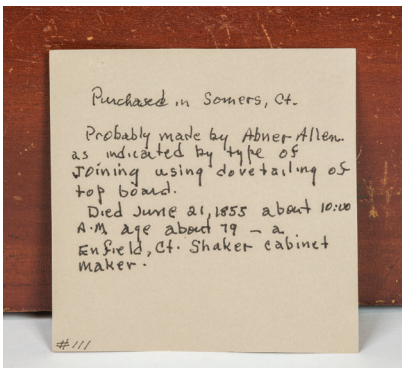 Purchased in Somers, Ct.
Probably made by Abner Allen.
as indicated by type of
Joining using dovetailing of
top board.
Died June 21, 1855 about 10:00
A.M age about 79 – a
Enfield, Ct. Shaker cabinet
maker.
#111